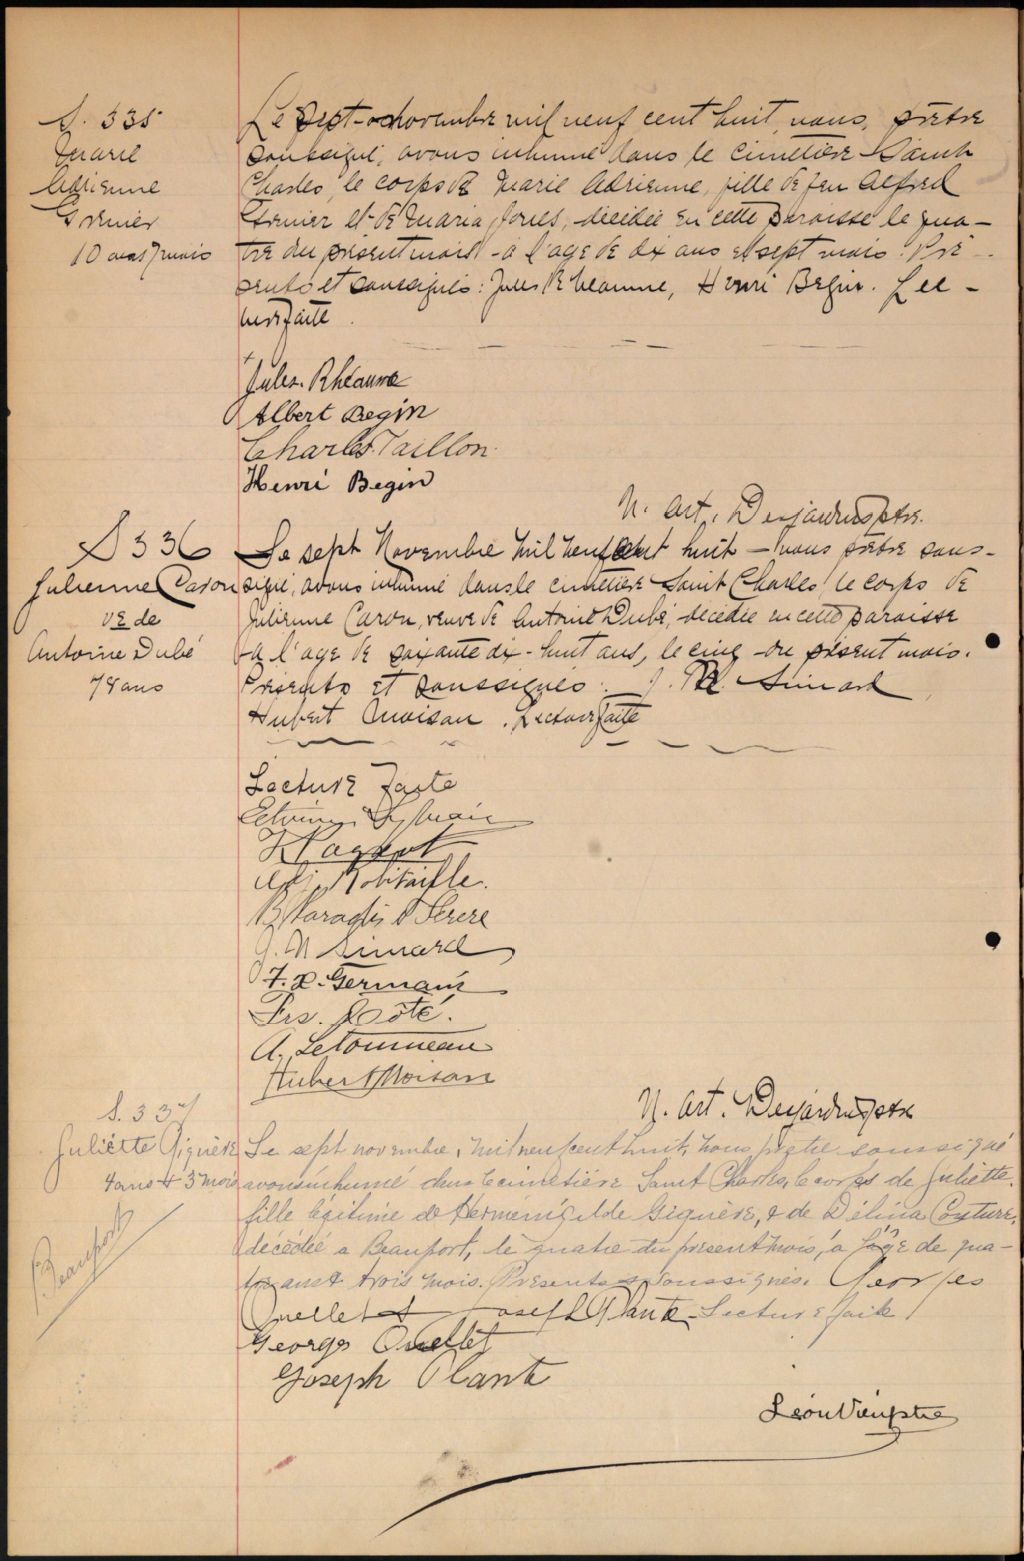 S. 335
Marie
Adrienne
Grenier
10 ans 7 mois
Le sept novembre mil neuf cent huit, nous, prêtre
soussigné, avons inhumé dans le cimetière Saint
Charles, le corps de Marie Adrienne, fille de feu Alfred
Grenier et de Maria Jones, décédée en cette paroisse le qua-
tre du présent mois à l'age de dix ans et sept mois. Pré-
sents et soussignés: Jules Rhéaume, Henri Begin. Lec-
ture faite.
Jules Rhéaume
Albert Begin
Charles Taillon
Henri Begin
N. Art. Desjardins ptre.
S 336
Julienne Caron
ve de
Antoine Dubé
78 ans
Le sept Novembre mil neuf cent huit - nous prêtre sous-
signé, avons inhumé dans le cimetière Saint Charles, le corps de
Julienne Caron, veuve de Antoine Dubé, décédée en cette paroisse
à l'age de soixante dix-huit ans, le cinq du présent mois.
Présents et soussignés: J. Simard
Hubert Moisan. Lecture faite
Lecture faite
Sylvain
Paquet
Robitaille.
B Paradis & Frere
J. N Simard
F. X. Germain
Frs. Côté.
A. Letourneau
Hubert Moisan
N. Art. Desjardins ptre
S. 337
Juliette Giguère
4 ans & 3 mois
Beauport
Le sept novembre, mil neuf cent huit, nous prêtre soussigné
avons inhumé dans le cimetière Saint Charles, le corps de Juliette,
fille légitime de Herménégilde Giguère, & de Délina Couture,
décédée a Beauport, le quatre du present mois, à l'âge de qua-
tre ans & trois mois. Présents & soussignés. Georges
Ouellet & Joseph Plante. Lecture faite
Georges Ouellet
Joseph Plante
Léon Vien ptre